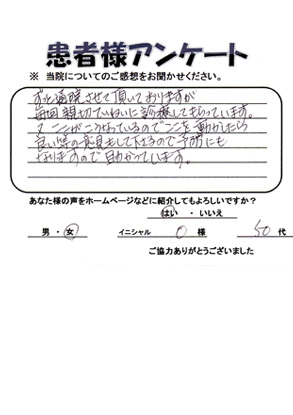 患者様アンケート
※ 当院についてのご感想をお聞かせください。
ずっと通院させて頂いておりますが
毎回親切ていねいに診療してもらっています。
ここがこうなっているのでここを動かしたら
良い等の意見もして下さるので予防にも
なりますので助かっています。
あなた様の声をホームページなどに紹介してもよろしいですか？
はい ・ いいえ
男 ・ 女 イニシャル O 様 50 代
ご協力ありがとうございました